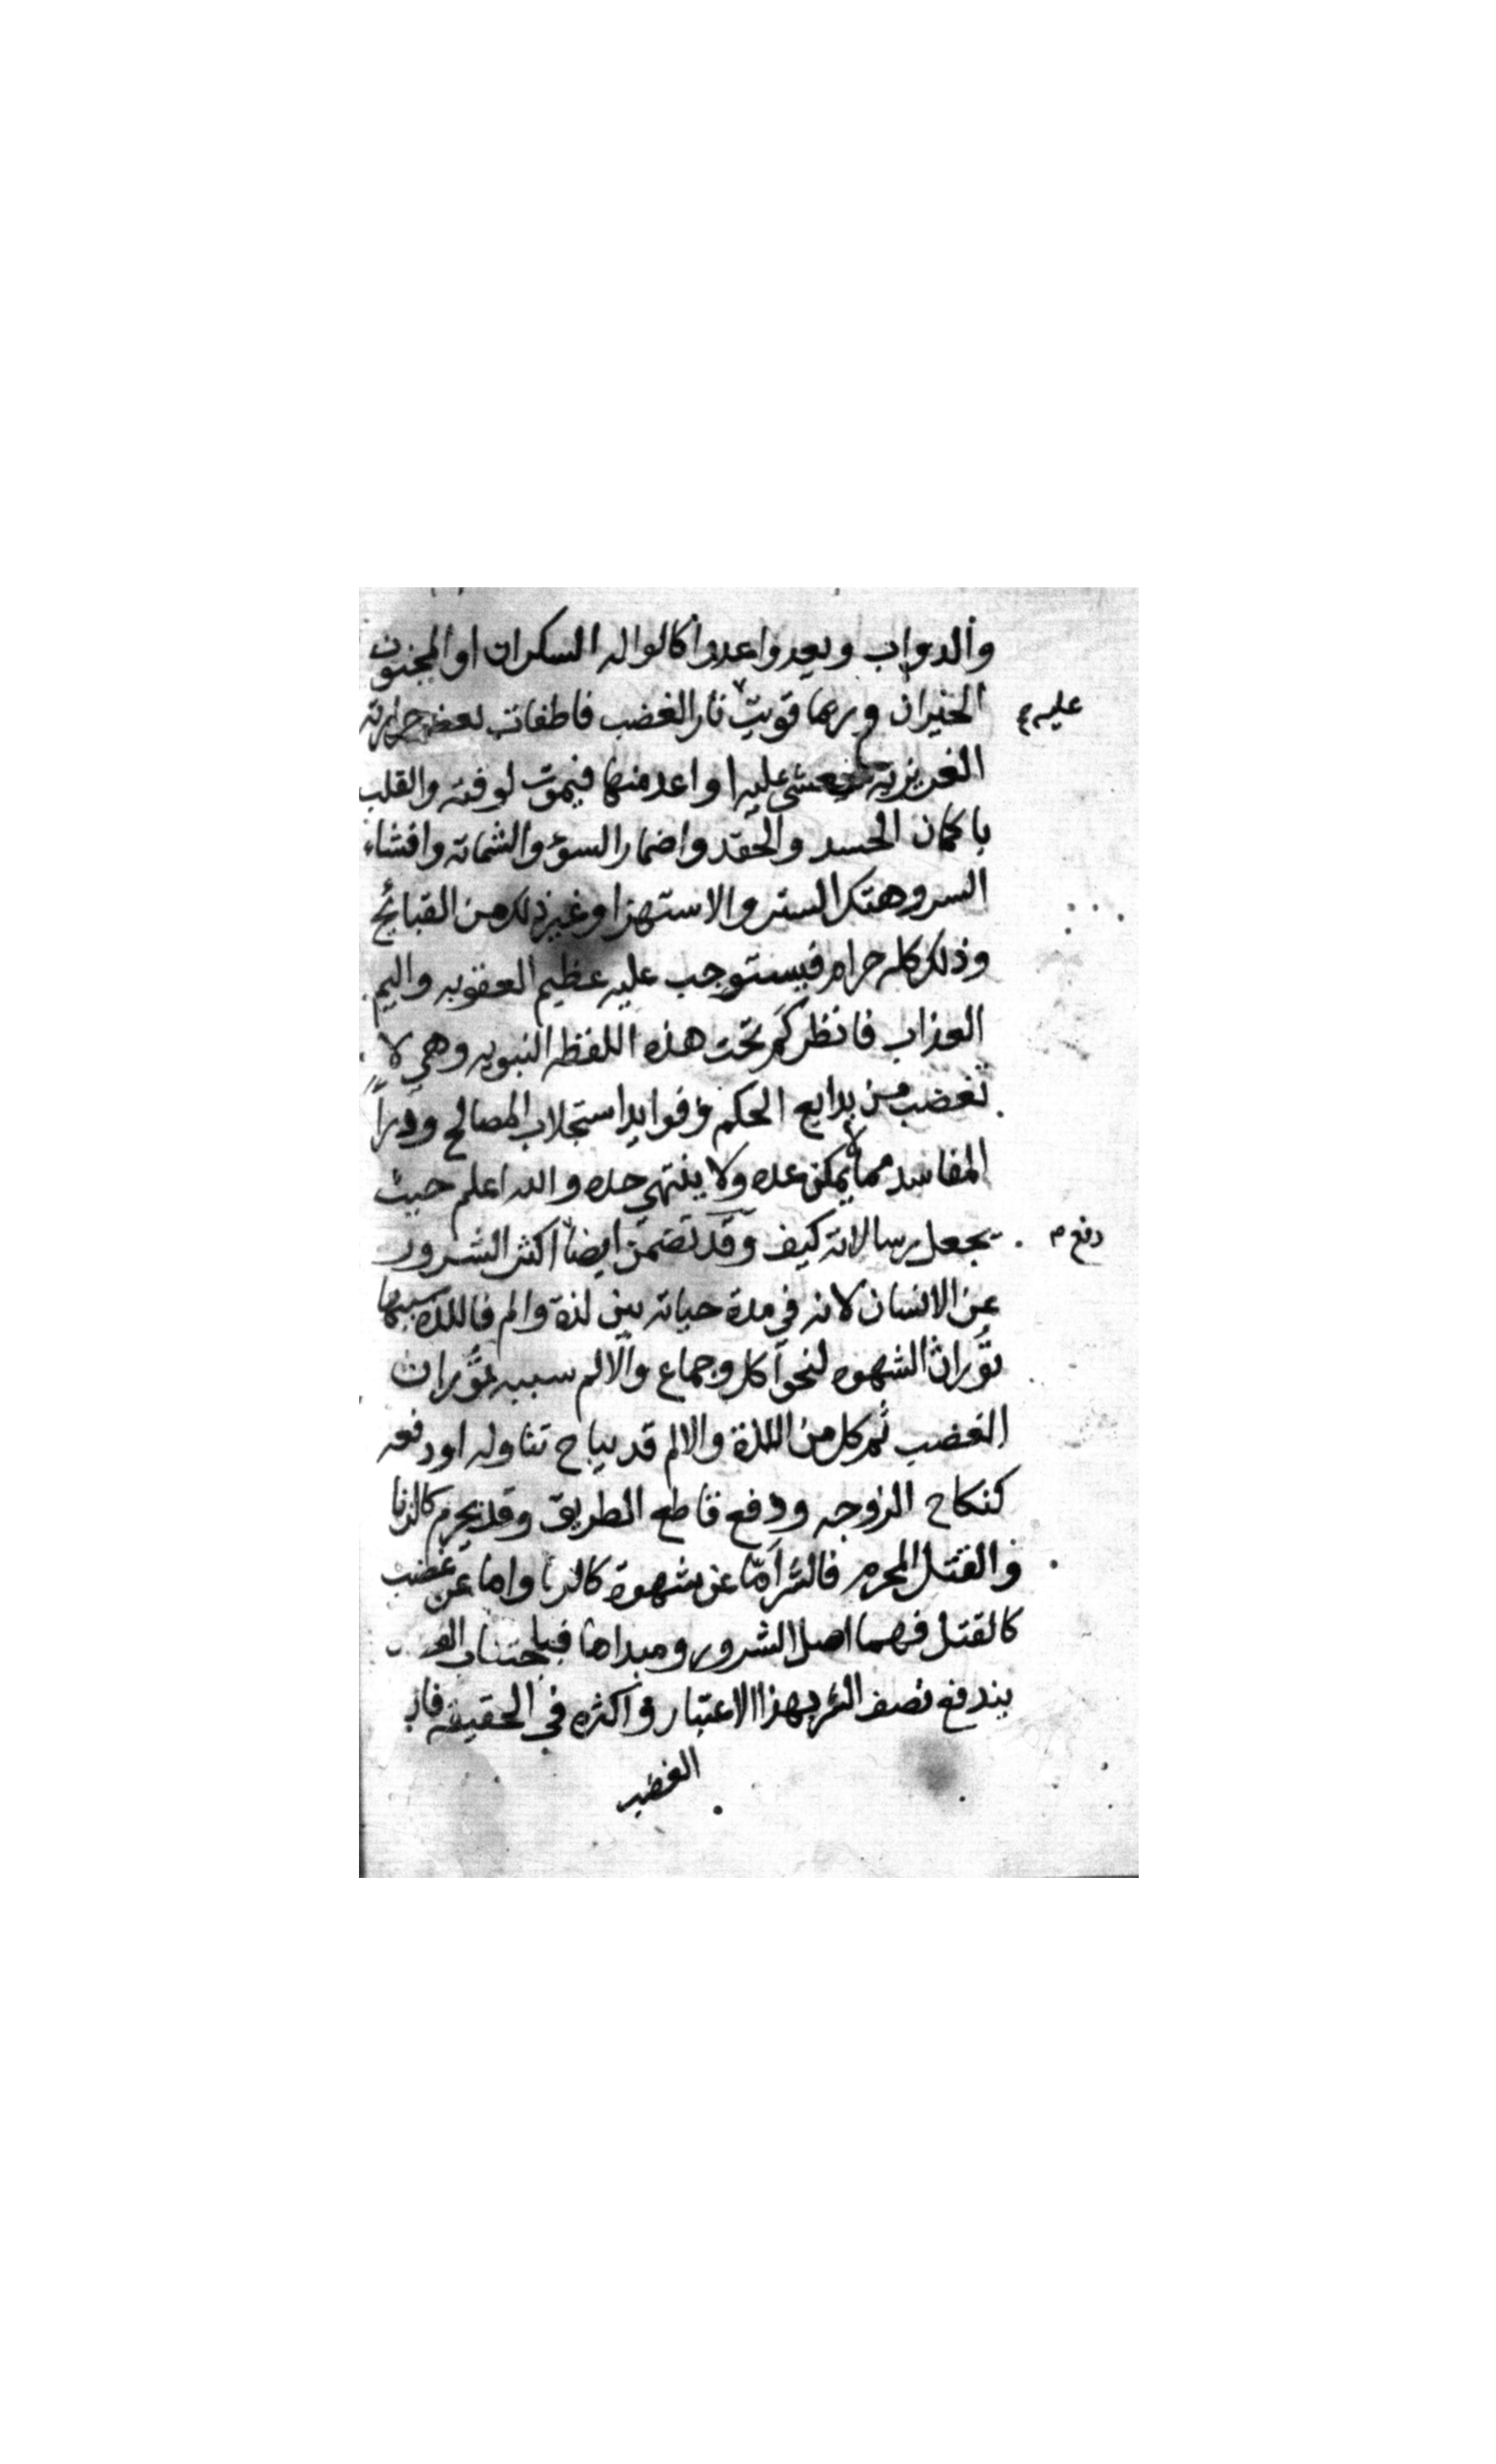 والدواب ويعدوا عدوا كالواله السكران او المجنون
الحيران وربما قويت نار الغضب فاطفات بعض حرارته
عليه
الغريزية فيغشى عليه او اعدمتها فيموت لوقته والقلب
باكمان الحسد والحقد واضمار السوء والشماته وافشاء
السر وهتك الستر والاستهزا وغير ذلك من القبائح
وذلك كله حرام فيستوجب عليه عظيم العقوبه واليم
العذاب فانظر كم تحت هذه اللفظه النبويه وهي لا
تغضب من بدايع الحكم وفوايد استجلاب المصالح ودرأ
المفاسد مما لا يمكن عده ولا ينتهي حده والله اعلم حيث
يجعل رسالاته كيف وقد تضمن ايضا اكثر الشرور
دفع
عن الانسان لانه في مدة حياته بين لذة والم فاللذه سببها
ثوران الشهوه لنحو اكل وجماع والالم سببه ثوران
الغضب ثم كل من اللذة والالم قد يباح تناوله او دفعه
كنكاح الزوجه ودفع قاطع الطريق وقد يحرم كالزنا
والقتل المحرم فالشر اما عن شهوة كالزنا واما عن غضب
كالقتل فهما اصل الشرور ومبداها فباجتناب الغضب
يندفع نصف الشر بهذا الاعتبار واكثره في الحقيقه فان
الغضب